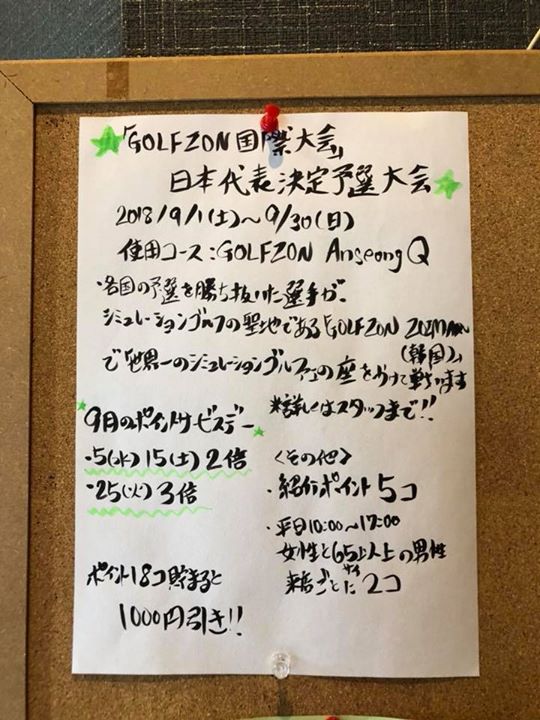 「GOLFZON国際大会」
日本代表決定予選大会
2018/9/1(土)～9/30(日)
使用コース:GOLFZON Anseong Q
・各国の予選を勝ち抜いた選手が、
シミュレーションゴルフの聖地である「GOLFZON ZOIMARU
(韓国)」
で世界一のシミュレーションゴルファーの座をかけて戦います
※詳しくはスタッフまで!!
9月のポイントサービスデー
・5(水) 15(土) 2倍
・25(火) 3倍
ポイント18コ貯まると
1000円引き!!
<その他>
・紹介ポイント 5コ
・平日10:00～17:00
女性と65才以上の男性
来店ごとに 2コ